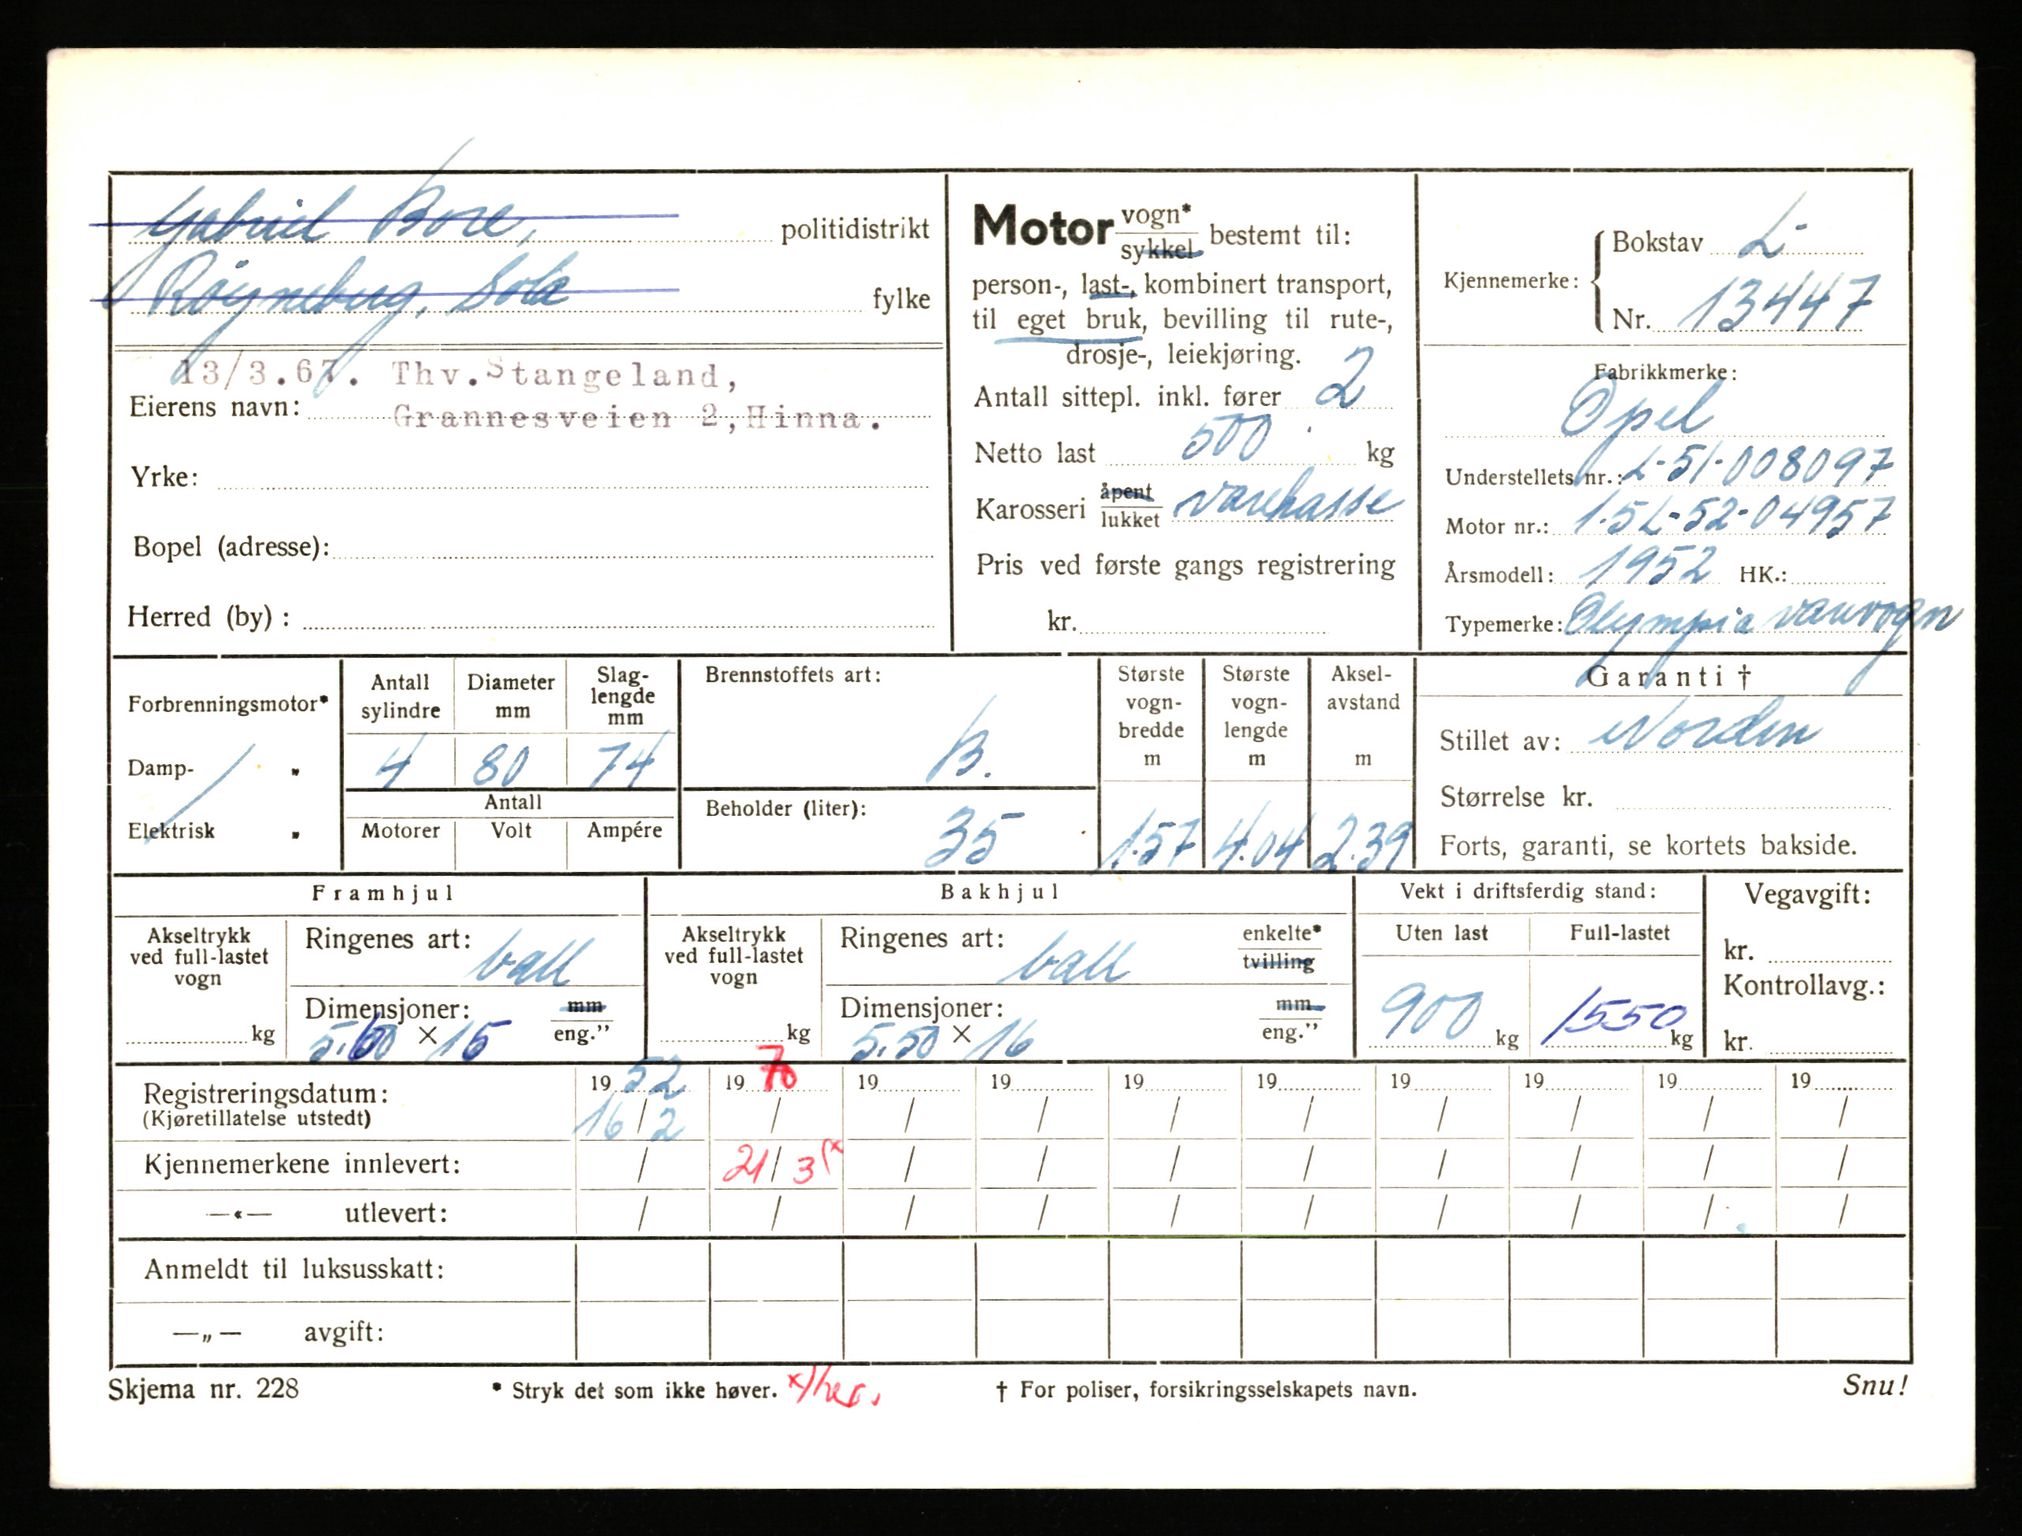 Gabriel Bore, politidistrikt
Røyneberg, Sola fylke
13/3.67. Thv.Stangeland,
Eierens navn: Grannesveien 2, Hinna.
Yrke:
Bopel (adresse):
Herred (by) :
Motor vogn* / sykkel bestemt til:
person-, last-, kombinert transport,
til eget bruk, bevilling til rute-,
drosje-, leiekjøring.
Antall sittepl. inkl. fører 2
Netto last 500 kg
Karosseri åpent / lukket varekasse
Pris ved første gangs registrering
kr.
Kjennemerke: Bokstav L-
Nr. 13447
Fabrikkmerke:
Opel
Understellets nr.: L-51-008097
Motor nr.: 1.5L-52-04957
Årsmodell: 1952 HK.:
Typemerke: Olympia varevogn
Forbrenningsmotor*
Damp- "
Elektrisk "
Antall sylindre
Diameter mm
Slag-lengde mm
4 80 74
Antall
Motorer Volt Ampére
Brennstoffets art:
B.
Beholder (liter):
35
Største vogn-bredde m
1.57
Største vogn-lengde m
4.04
Aksel-avstand m
2.39
Garanti †
Stillet av: Norden
Størrelse kr.
Forts, garanti, se kortets bakside.
Framhjul
Akseltrykk ved full-lastet vogn
kg
Ringenes art: ball
Dimensjoner: mm / eng."
5.60 × 15
Bakhjul
Akseltrykk ved full-lastet vogn
kg
Ringenes art: ball enkelte* / tvilling
Dimensjoner: mm / eng."
5.50 × 16
Vekt i driftsferdig stand:
Uten last Full-lastet
900 kg 1550 kg
Vegavgift:
kr.
Kontrollavg.:
kr.
Registreringsdatum: 19 52 19 70 19 19 19 19 19 19 19 19
(Kjøretillatelse utstedt) 16/2 / / / / / / / / /
Kjennemerkene innlevert: / 21/3 x / / / / / / / /
—«— utlevert: / / / / / / / / / /
Anmeldt til luksusskatt:
—„— avgift:
Skjema nr. 228 * Stryk det som ikke høver. x/her. † For poliser, forsikringsselskapets navn. Snu!